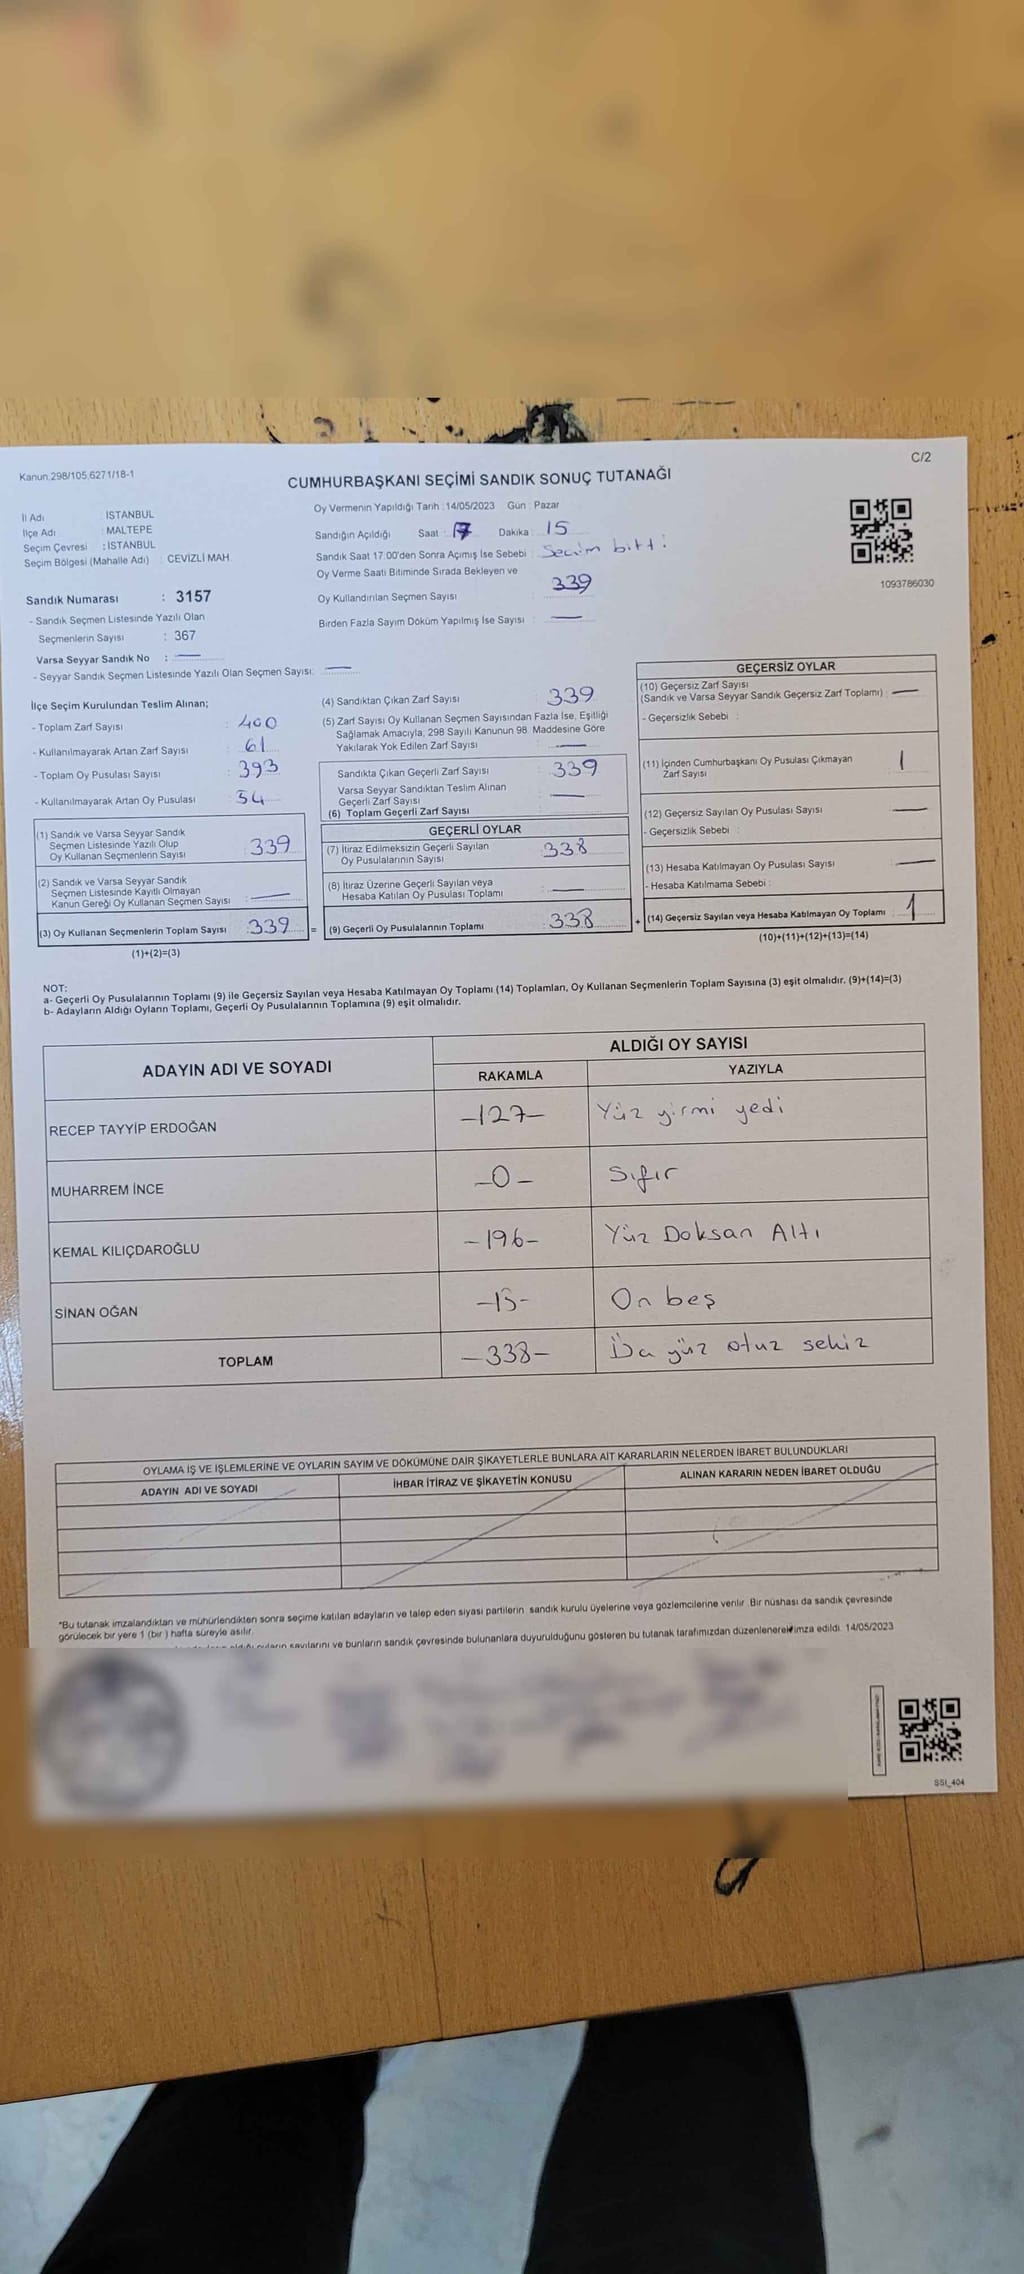 Kanun.298/105.6271/18-1
C/2
CUMHURBAŞKANI SEÇİMİ SANDIK SONUÇ TUTANAĞI
İl Adı : İSTANBUL
İlçe Adı : MALTEPE
Seçim Çevresi : İSTANBUL
Seçim Bölgesi (Mahalle Adı) : CEVİZLİ MAH.
Sandık Numarası : 3157
- Sandık Seçmen Listesinde Yazılı Olan
Seçmenlerin Sayısı : 367
Varsa Seyyar Sandık No : —
- Seyyar Sandık Seçmen Listesinde Yazılı Olan Seçmen Sayısı: —
Oy Vermenin Yapıldığı Tarih : 14/05/2023 Gün : Pazar
Sandığın Açıldığı Saat : 17 Dakika : 15
Sandık Saat 17:00'den Sonra Açımış İse Sebebi : Seçim bitti
Oy Verme Saati Bitiminde Sırada Bekleyen ve
Oy Kullandırılan Seçmen Sayısı : 339
Birden Fazla Sayım Döküm Yapılmış İse Sayısı : —
1093786030
İlçe Seçim Kurulundan Teslim Alınan;
- Toplam Zarf Sayısı : 400
- Kullanılmayarak Artan Zarf Sayısı : 61
- Toplam Oy Pusulası Sayısı : 393
- Kullanılmayarak Artan Oy Pusulası : 54
(1) Sandık ve Varsa Seyyar Sandık
Seçmen Listesinde Yazılı Olup
Oy Kullanan Seçmenlerin Sayısı : 339
(2) Sandık ve Varsa Seyyar Sandık
Seçmen Listesinde Kayıtlı Olmayan
Kanun Gereği Oy Kullanan Seçmen Sayısı : —
(3) Oy Kullanan Seçmenlerin Toplam Sayısı : 339 =
(1)+(2)=(3)
(4) Sandıktan Çıkan Zarf Sayısı : 339
(5) Zarf Sayısı Oy Kullanan Seçmen Sayısından Fazla İse, Eşitliği
Sağlamak Amacıyla, 298 Sayılı Kanunun 98. Maddesine Göre
Yakılarak Yok Edilen Zarf Sayısı : —
Sandıkta Çıkan Geçerli Zarf Sayısı : 339
Varsa Seyyar Sandıktan Teslim Alınan
Geçerli Zarf Sayısı : —
(6) Toplam Geçerli Zarf Sayısı
GEÇERLİ OYLAR
(7) İtiraz Edilmeksizin Geçerli Sayılan
Oy Pusulalarının Sayısı : 338
(8) İtiraz Üzerine Geçerli Sayılan veya
Hesaba Katılan Oy Pusulası Toplamı : —
(9) Geçerli Oy Pusulalarının Toplamı : 338 +
GEÇERSİZ OYLAR
(10) Geçersiz Zarf Sayısı
(Sandık ve Varsa Seyyar Sandık Geçersiz Zarf Toplamı) : —
- Geçersizlik Sebebi :
(11) İçinden Cumhurbaşkanı Oy Pusulası Çıkmayan
Zarf Sayısı 1
(12) Geçersiz Sayılan Oy Pusulası Sayısı —
- Geçersizlik Sebebi :
(13) Hesaba Katılmayan Oy Pusulası Sayısı —
- Hesaba Katılmama Sebebi :
(14) Geçersiz Sayılan veya Hesaba Katılmayan Oy Toplamı 1
(10)+(11)+(12)+(13)=(14)
NOT:
a- Geçerli Oy Pusulalarının Toplamı (9) ile Geçersiz Sayılan veya Hesaba Katılmayan Oy Toplamı (14) Toplamları, Oy Kullanan Seçmenlerin Toplam Sayısına (3) eşit olmalıdır. (9)+(14)=(3)
b- Adayların Aldığı Oyların Toplamı, Geçerli Oy Pusulalarının Toplamına (9) eşit olmalıdır.
ADAYIN ADI VE SOYADI
ALDIĞI OY SAYISI
RAKAMLA YAZIYLA
RECEP TAYYİP ERDOĞAN -127- Yüz yirmi yedi
MUHARREM İNCE -0- Sıfır
KEMAL KILIÇDAROĞLU -196- Yüz Doksan Altı
SİNAN OĞAN -15- On beş
TOPLAM -338- yüz otuz sekiz
OYLAMA İŞ VE İŞLEMLERİNE VE OYLARIN SAYIM VE DÖKÜMÜNE DAİR ŞİKAYETLERLE BUNLARA AİT KARARLARIN NELERDEN İBARET BULUNDUKLARI
ADAYIN ADI VE SOYADI İHBAR İTİRAZ VE ŞİKAYETİN KONUSU ALINAN KARARIN NEDEN İBARET OLDUĞU
*Bu tutanak imzalandıktan ve mühürlendikten sonra seçime katılan adayların ve talep eden siyasi partilerin sandık kurulu üyelerine veya gözlemcilerine verilir. Bir nüshası da sandık çevresinde
görülecek bir yere 1 (bir ) hafta süreyle asılır.
sayılarını ve bunların sandık çevresinde bulunanlara duyurulduğunu gösteren bu tutanak tarafımızdan düzenlenerek imza edildi. 14/05/2023
SSI_404